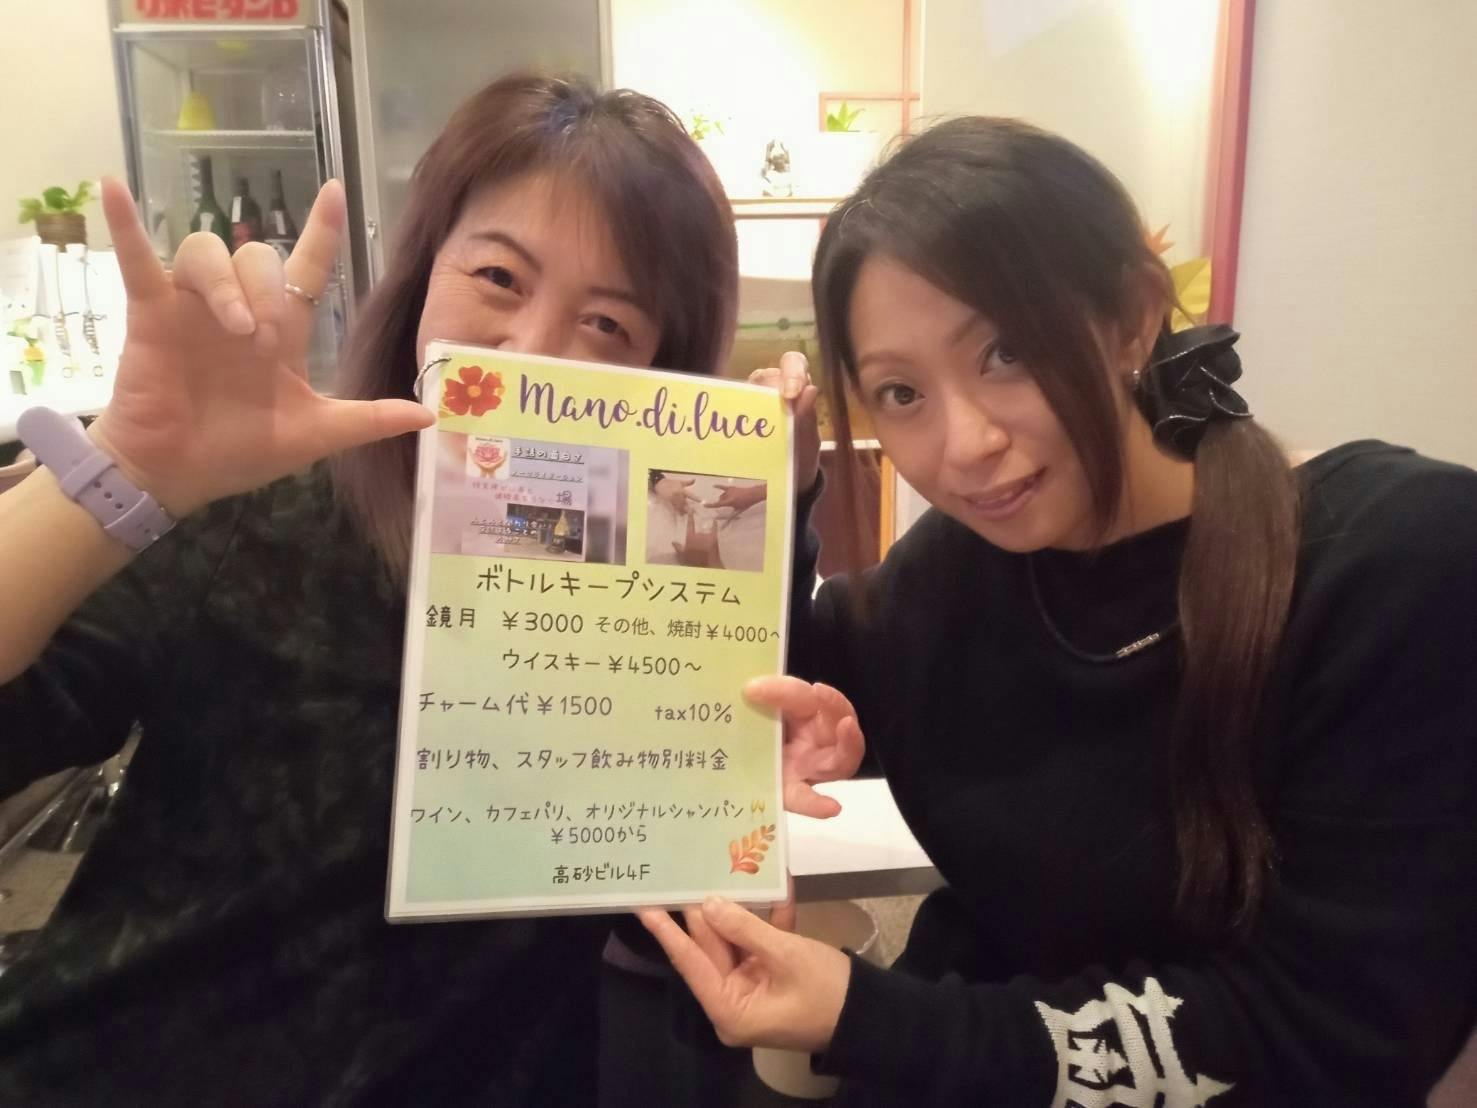 リポビタンD
Mano.di.luce
ボトルキープシステム
鏡月　￥3000 その他、焼酎￥4000～
ウイスキー￥4500～
チャーム代￥1500　tax10%
割り物、スタッフ飲み物別料金
ワイン、カフェパリ、オリジナルシャンパン
￥5000から
高砂ビル4F